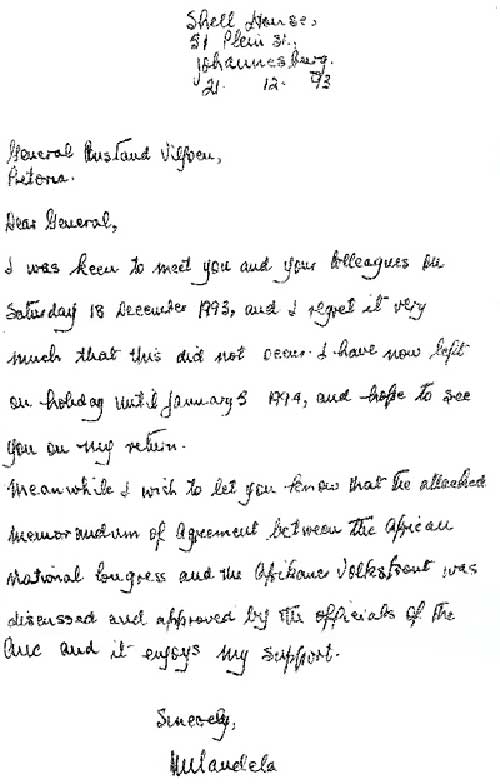 Shell House,
51 Plein St.,
Johannesburg.
21. 12. 93
General Constand Viljoen,
Pretoria.
Dear General,
I was keen to meet you and your colleagues on
Saturday 18 December 1993, and I regret it very
much that this did not occur. I have now left
on holiday until January 3 1994, and hope to see
you on my return.
Meanwhile I wish to let you know that the attached
Memorandum of Agreement between the African
National Congress and the Afrikaner Volksfront was
discussed and approved by the officials of the
ANC and it enjoys my support.
Sincerely,
NMandela